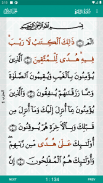 بِسْمِ ٱللَّهِ ٱلرَّحْمَٰنِ ٱلرَّحِيمِ
الٓمٓ ١ ذَٰلِكَ ٱلْكِتَٰبُ لَا رَيْبَ
فِيهِ هُدًى لِّلْمُتَّقِينَ ٢ ٱلَّذِينَ
يُؤْمِنُونَ بِٱلْغَيْبِ وَيُقِيمُونَ ٱلصَّلَوٰةَ
وَمِمَّا رَزَقْنَٰهُمْ يُنفِقُونَ ٣ وَٱلَّذِينَ
يُؤْمِنُونَ بِمَآ أُنزِلَ إِلَيْكَ وَمَآ أُنزِلَ
مِن قَبْلِكَ وَبِٱلْءَاخِرَةِ هُمْ يُوقِنُونَ ٤
أُو۟لَٰٓئِكَ عَلَىٰ هُدًى مِّن رَّبِّهِمْ
وَأُو۟لَٰٓئِكَ هُمُ ٱلْمُفْلِحُونَ ٥